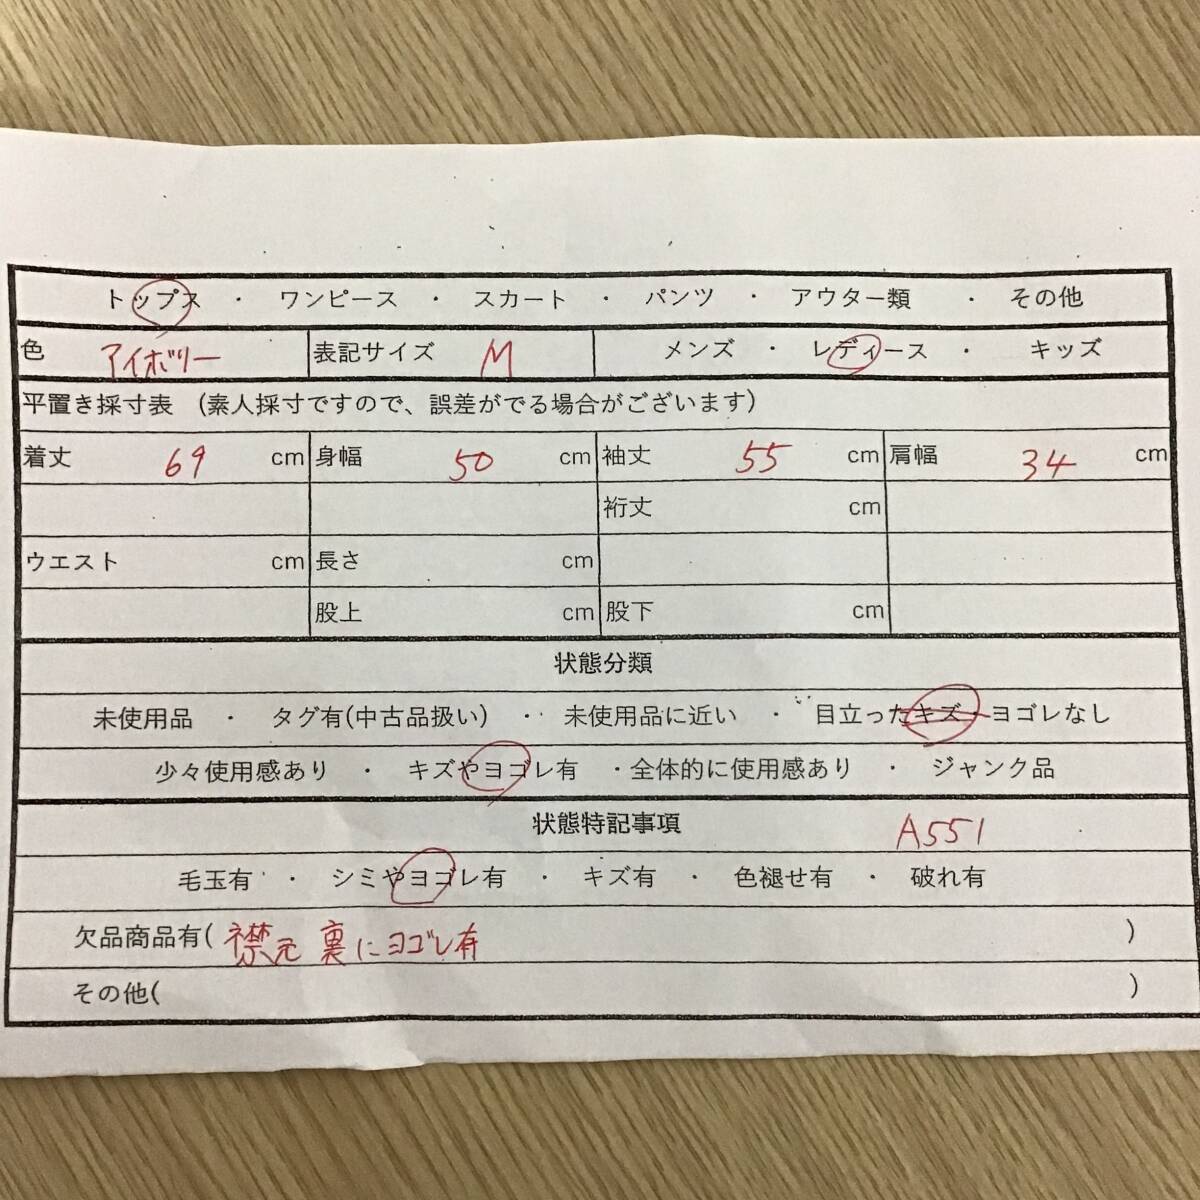 トップス ・ ワンピース ・ スカート ・ パンツ ・ アウター類 ・ その他
色 アイボリー 表記サイズ M メンズ ・ レディース ・ キッズ
平置き採寸表 (素人採寸ですので、誤差がでる場合がございます)
着丈 69 cm 身幅 50 cm 袖丈 55 cm 肩幅 34 cm
裄丈 cm
ウエスト cm 長さ cm
股上 cm 股下 cm
状態分類
未使用品 ・ タグ有(中古品扱い) ・ 未使用品に近い ・ 目立ったキズ ヨゴレなし
少々使用感あり ・ キズやヨゴレ有 ・全体的に使用感あり ・ ジャンク品
状態特記事項 A551
毛玉有 ・ シミやヨゴレ有 ・ キズ有 ・ 色褪せ有 ・ 破れ有
欠品商品有( 襟元 裏にヨゴレ有 )
その他( )